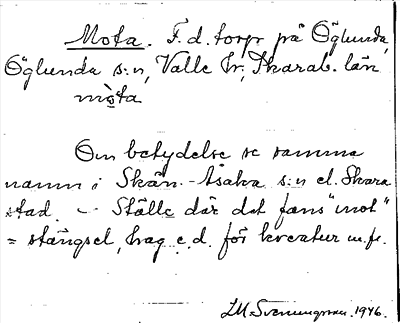 Mota. F. d. torp på Öglunda,
Öglunda s:n, Valle hr, Skarab. län
mòta
Om betydelse se samma
namn i Skån.-Åsaka s:n el. Skara
stad. – Ställe där det fans "mot"
= stängsel, hag e.d. för kreatur m.fl.
1946.